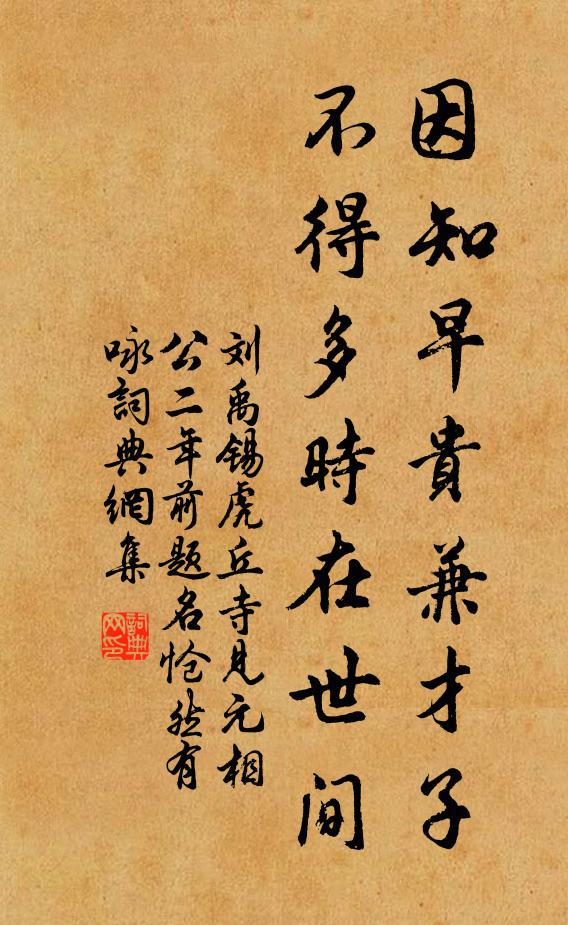 因知早貴兼才子
不得多時在世间
刘禹锡虎丘寺見元相
公二年前题名怆然有
咏詞典網集
詞典
网印